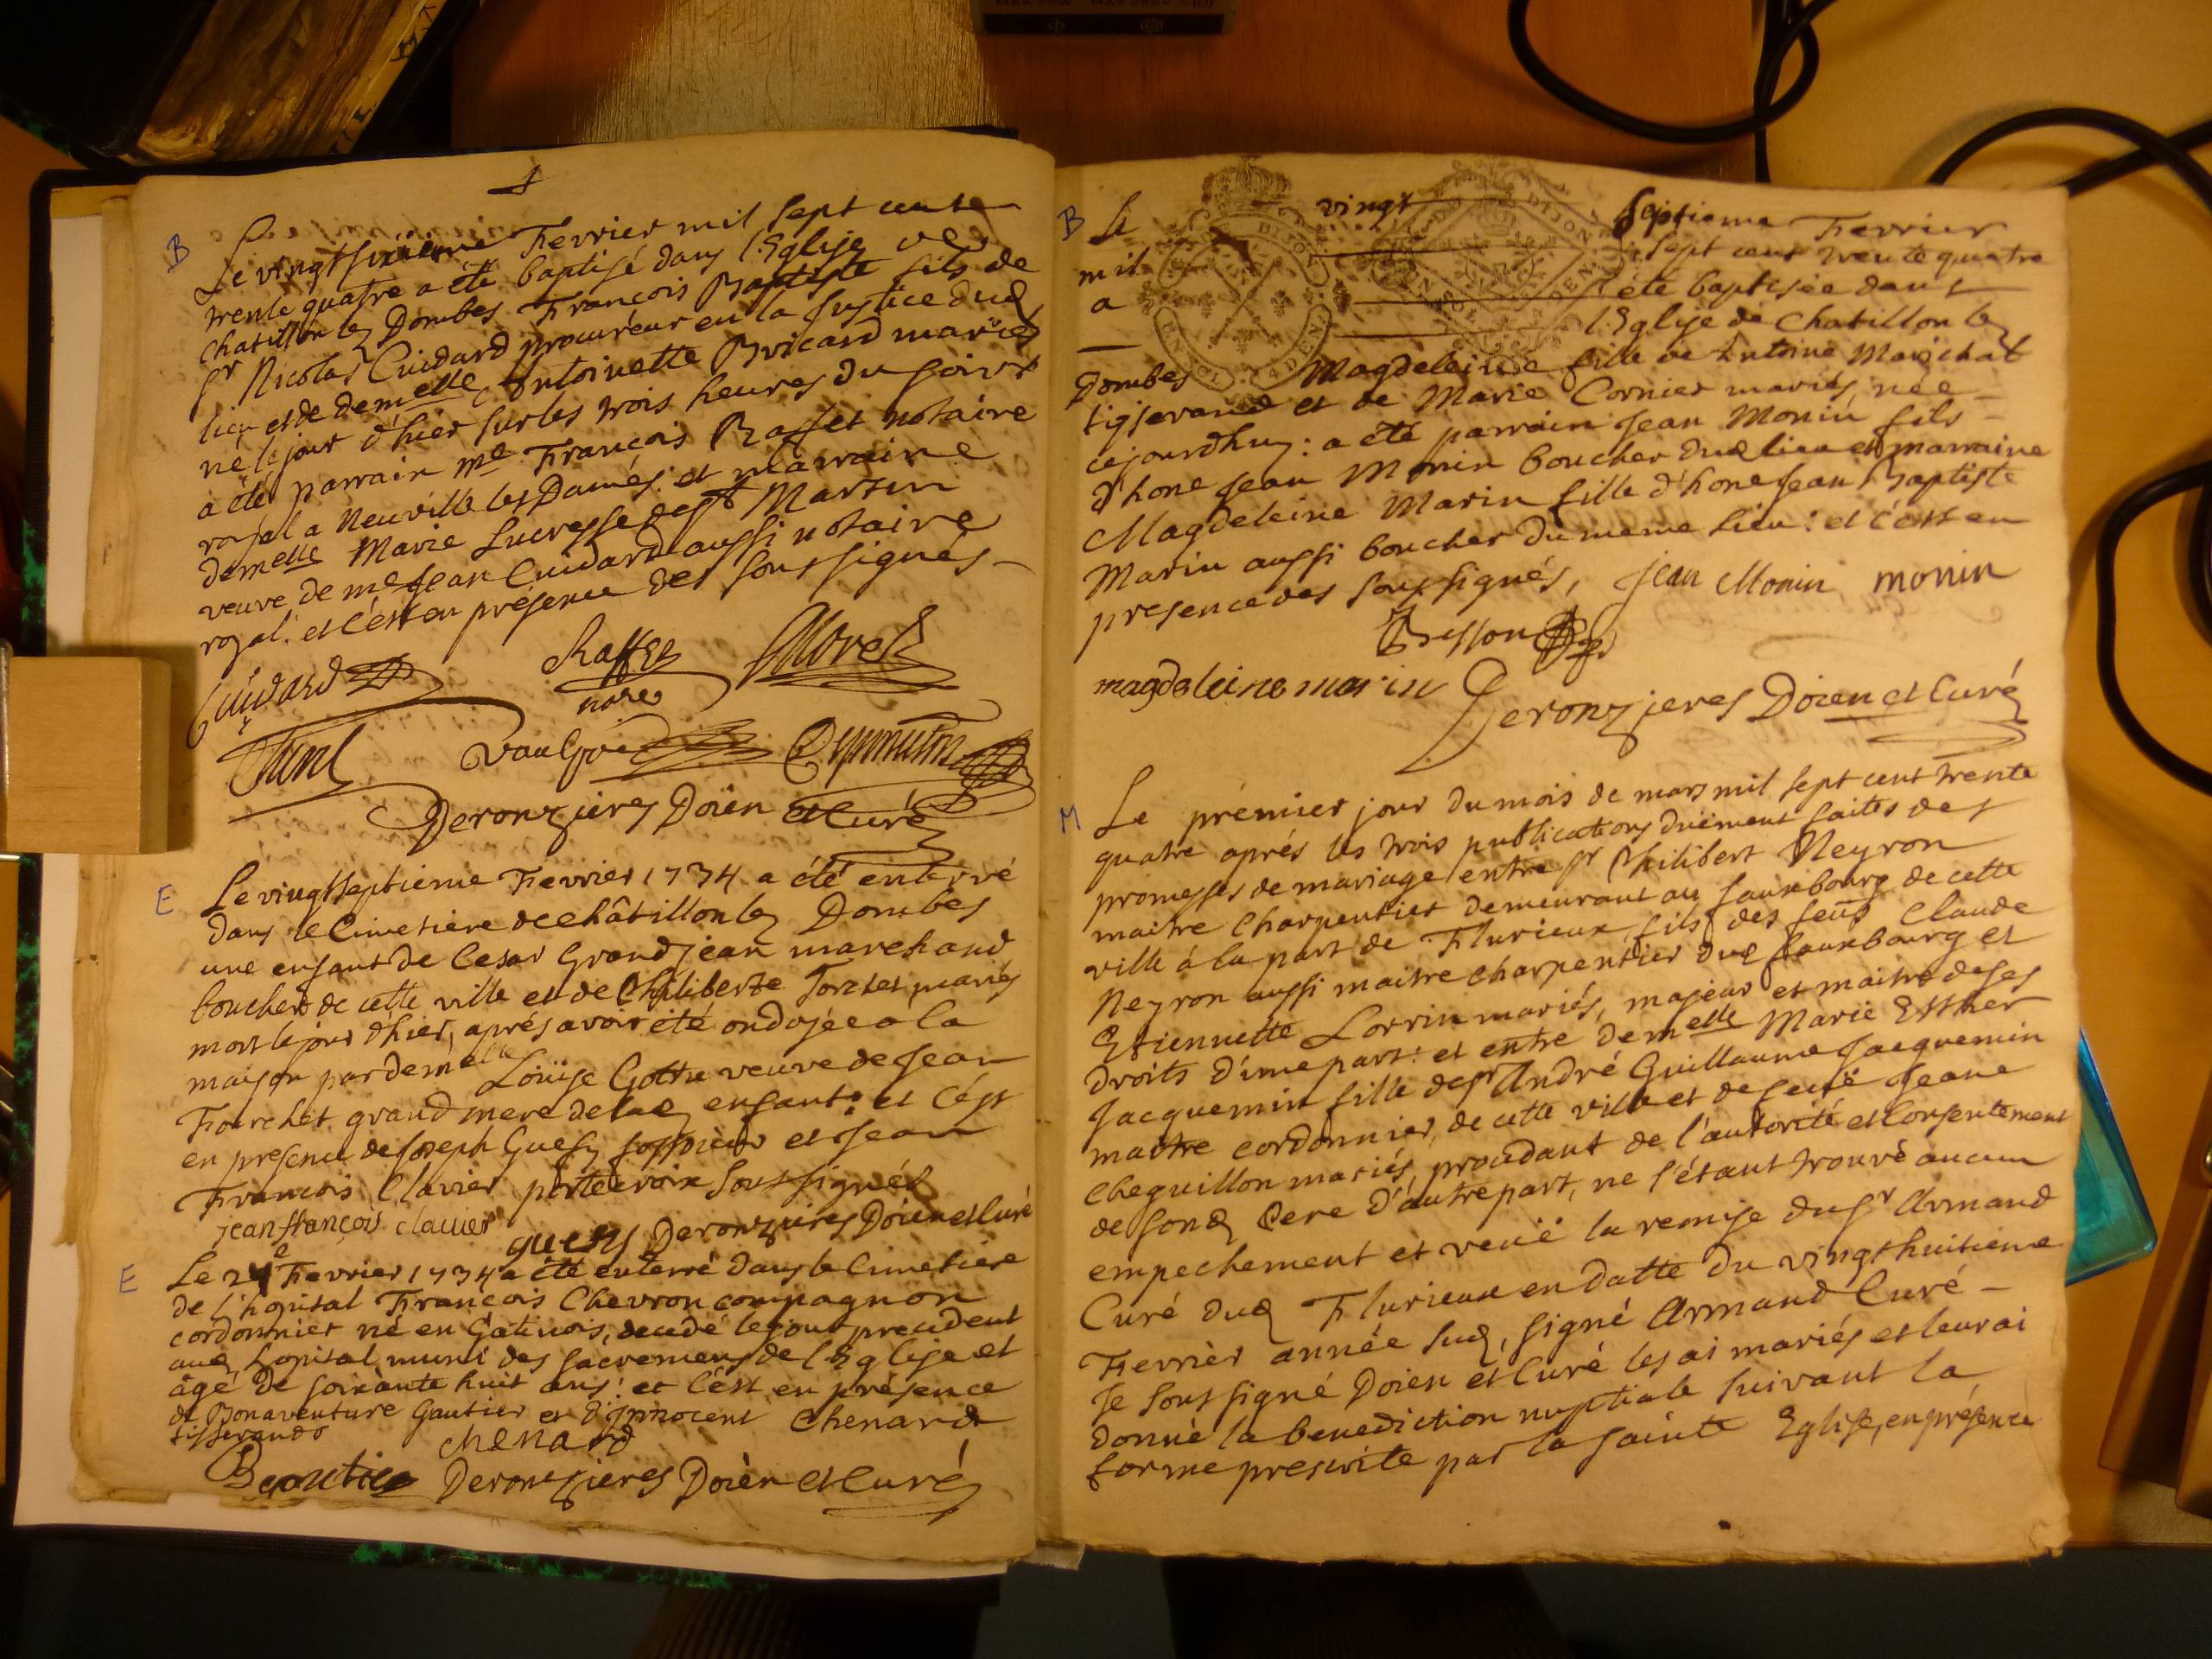 B Le vingt sixième Fevrier mil sept cent
trente quatre a été baptisé dans l'Eglise de
chatillon lez Dombes François Baptiste fils de
Sr Nicolas Cuidard procureur en la justice dud
lieu et de demelle Antoinette Bricard mariés
né le jour d'hier sur les trois heures du soir
a été parrain me François Raffet notaire
royal a Neuville les Dames: et marraine
demelle Marie Lucresse Martin
veuve de me Jean Cuidard aussi notaire
royal. et c'est en présence des soussignés
Cuidard Raffet Morel
nore
Deronzieres Doïen et Curé
E Le vingt septieme Fevrier 1734 a été enterré
dans le Cimetiere de châtillon lez Dombes
une enfant de Cesar Grandjean marchand
boucher de cette ville et de Philiberte Forchet mariés
mort le jour d'hier, aprés avoir été ondoyée a la
maison par demelle Loüise Gottu veuve de Jean
Forchet grand mere de lad enfant: et c'est
en presence de Joseph Guesy fossoieur et Jean
François Clavier porte croix soussignés
jean françois clavier guesy Deronzieres Doïen et Curé
E Le 2 Fevrier 1734 a été enterré dans le Cimetiere
de l'hopital François Chevron compagnon
cordonnier né en Gatinois, decedé le jour precedent
aud hopital muni des sacremens de l'Eglise et
âgé de soixante huit ans: et c'est en présence
de Bonaventure Gautier et d'Innocent Chenard
tisserands chenard
B gautier Deronzieres Doïen et Curé
B Le vingt septieme Fevrier
mil sept cent trente quatre
a été baptisée dans
l'Eglise de Chatillon lez
Dombes Magdeleine fille de Antoine Marichal
tisserand et de Marie Cornier mariés née
cejourdhuy: a été parrain Jean Monin fils
d'hone Jean Monin boucher dud lieu et marraine
Magdeleine Marin fille d'hone Jean Baptiste
Marin aussi boucher du meme lieu: et c'est en
presence des soussignés, Jean Monin monin
Besson
magdeleine marin Deronzieres Doïen et Curé
M Le prémier jour du mois de mars mil sept cent trente
quatre aprés les trois publications düement faites des
promesses de mariage entre Sr Philibert Neyron
maitre Charpentier demeurant au fauxbourg de cette
ville à la part de Flurieux fils des feus Claude
Neyron aussi maitre charpentier dud fauxbourg et
Etiennette Lorrin mariés, majeur et maitre de ses
Droits d'une part: et entre demelle Marie Esther
Jacquemin fille de Sr André Guillaume Jacquemin
maitre cordonnier, de cette ville et de feuë Jeane
Cheguillon mariés, procedant de l'autorité et consentement
de sond Pere d'autre part, ne s'étant trouvé aucun
empechement et veuë la remise du Sr Armand
Curé dud Flurieux en datte du vingt huitieme
Fevrier année sud, signé Armand Curé
Je soussigné Doïen et Curé les ai mariés et leur ai
donné la benediction nuptiale suivant la
forme prescrite par la sainte Eglise, en présence